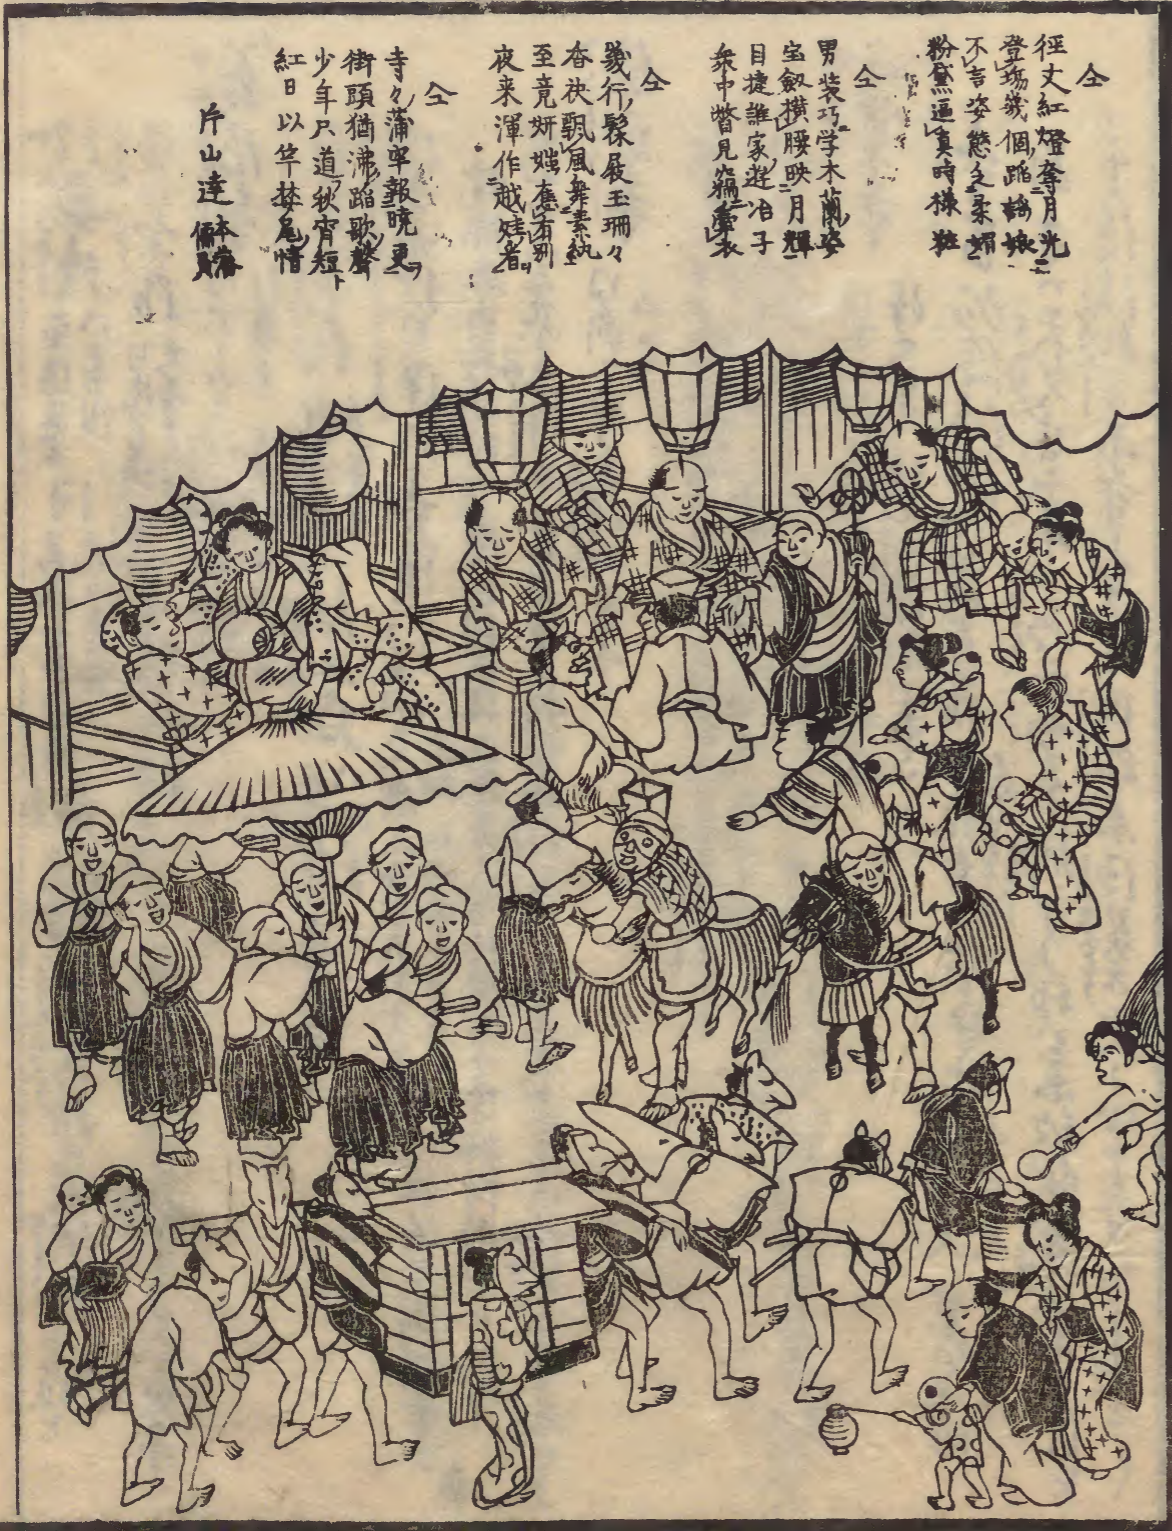 仝
徑丈紅燈奪月光
登場幾個踊
不言姿態之柔媚
粉黛逼真時様粧
仝
男装巧学木蘭姿
宝劔横腰映月輝
目捷誰家遊冶子
衆中瞥見竊
仝
幾行鬃展玉珊々
香袂飄風舞素紈
至竟妍媸應有別
夜来渾作越娃看
仝
寺々蒲牢報暁更
街頭猶沸踊歌聲
少年尺道秋宵短
紅日
片山達
本藩
儒員